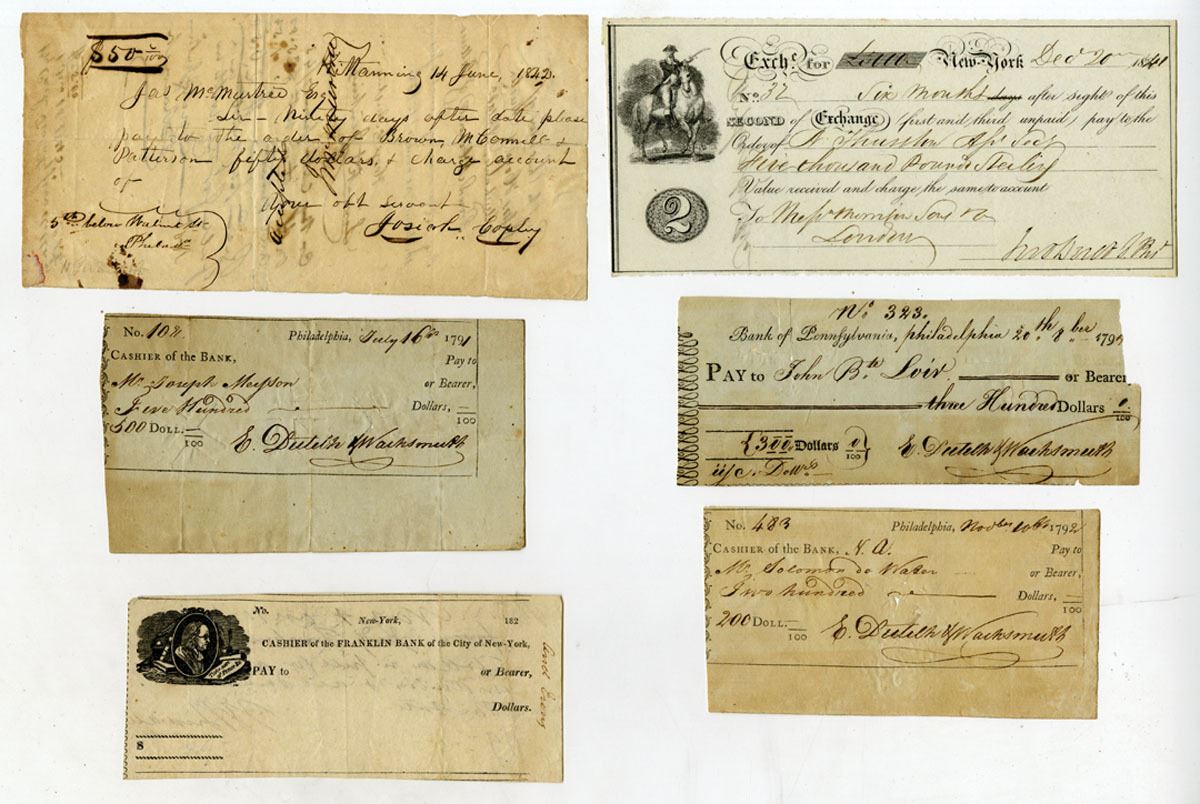 $50 0/100
Kittanning 14 June, 1842.
Jas McMurtree Esq
Sir - Ninety days after date please
pay to the order of Brown, McConnell &
Patterson fifty dollars, & charge account
of
your obt servant
Josiah Copley
5th below Walnut St
Philada
Exche. for New-York Decr 20 1841
No. 32 Six Months days after sight of this
SECOND of Exchange (first and third unpaid) pay to the
Order of
Five thousand Pounds Sterling
Value received and charge the same to account
To Messrs Morrison Sons & Co
London
2
No. 102 Philadelphia, July 16th 1791
CASHIER of the BANK, Pay to
Mr Joseph or Bearer,
Five Hundred Dollars, —/100
500 DOLL. —/100
E. Dutilh & Wachsmuth
No. 323.
Bank of Pennsylvania, philadelphia 20th 8ber 179
PAY to John Bte Loir or Bearer
three Hundred Dollars 0/100
{300 Dollars 0/100}
E. Dutilh & Wachsmuth
No. 483 Philadelphia, Novber 10th 1792
CASHIER of the BANK, N. A. Pay to
Mr Solomon or Bearer,
Two hundred Dollars, —/100
200 DOLL. —/100
E. Dutilh & Wachsmuth
No.
New-York, 182
CASHIER of the FRANKLIN BANK of the City of New-York,
PAY to or Bearer,
Dollars.
$